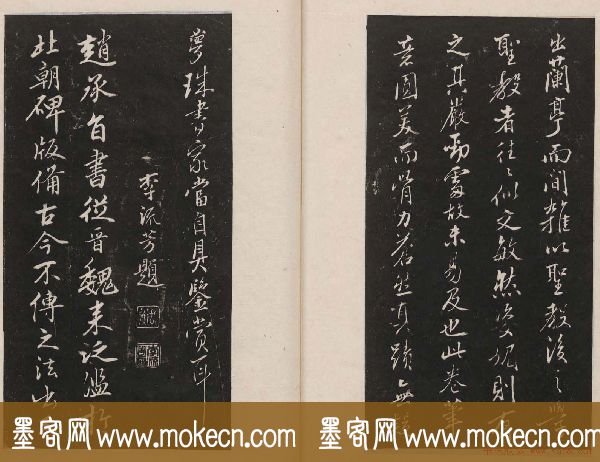 出蘭亭而间雜以聖教後之學
聖教者往〻似文敏然姿媚則有
之其嚴勁處故未易及也此卷筆
意圆美而骨力蒼然真蹟無疑
夢珠書家當自具鑒賞耳
李流芳題
趙承旨書從晉魏来泛濫於
北朝碑版備古今不傳之法出
墨客网 www.mokecn.com
墨客网 www.mokecn.com